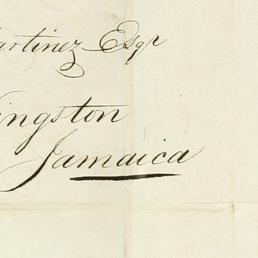 artinez Esqr
ingston
Jamaica